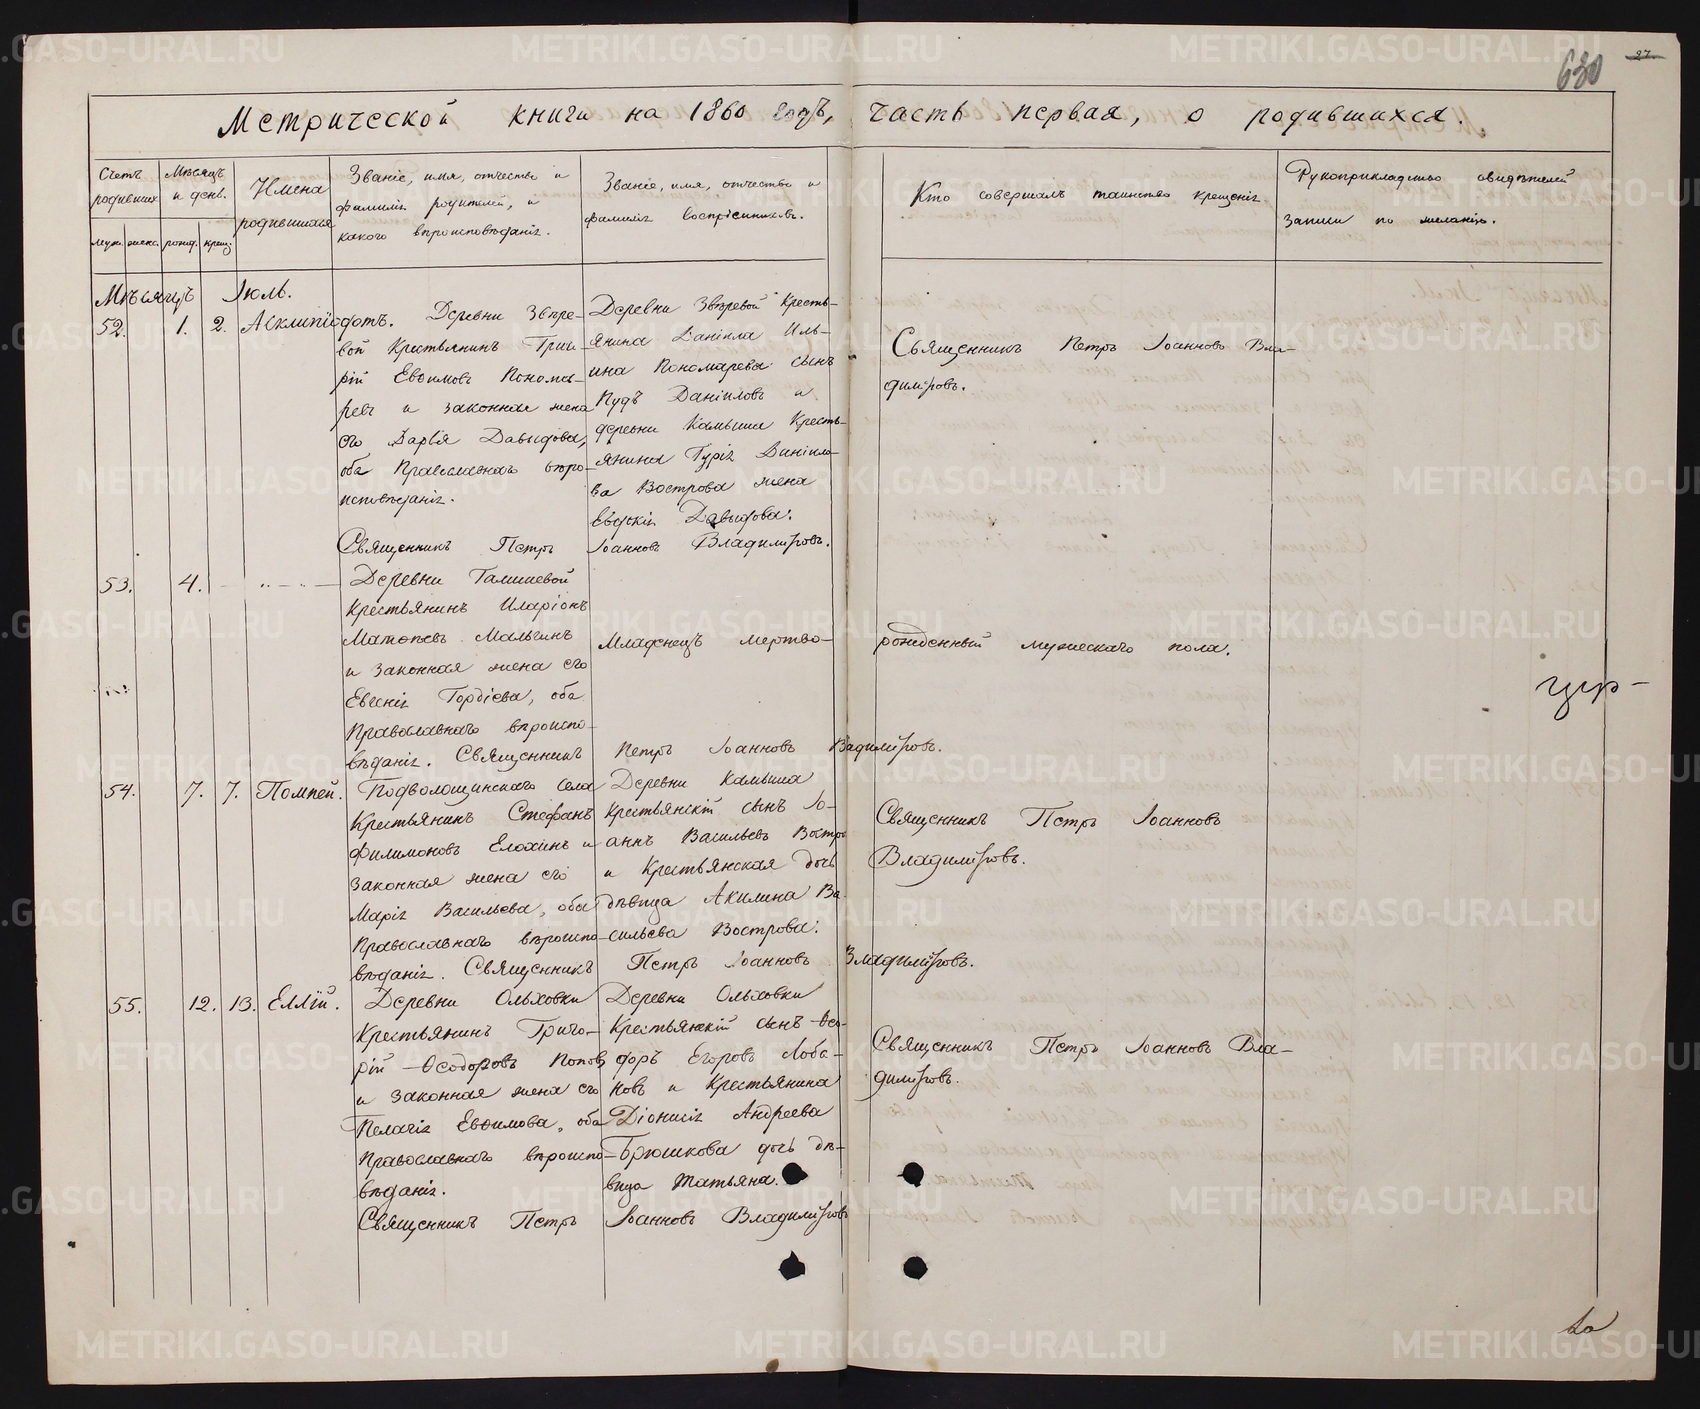 630
27
Метрической книги на 1860 годъ, часть первая, о родившихся.
Счетъ родивших
муж. женс.
Мѣсяцъ и день.
рожд. крещ.
Имена родившихся
Званіе, имя, отчество и
фамилія родителей, и
какого вѣроисповѣданія.
Званіе, имя, отчество и
фамилія воспріемниковъ.
Кто совершалъ таинство крещенія.
Рукоприкладство свидѣтелей
записи по желанію.
Мѣсяцъ Іюль.
52. 1. 2. Асклипіодотъ.
Деревни Звѣре-
вой Крестьянинъ Григо-
рій Евѳимовъ Понома-
ревъ и законная жена
его Дарья Давыдова,
оба Православнаго вѣро-
исповѣданія.
Деревни Звѣревой Кресть-
янина Даніила Иль-
ина Пономарева сынъ
Пудъ Даніиловъ и
деревни Камыша Кресть-
янина Гурія Даніило-
ва Вострова жена
Евдокія Давыдова.
Священникъ Петръ Іоанновъ Вла-
диміровъ.
Священникъ Петръ Іоанновъ Владиміровъ.
53. 4.
Деревни Галишевой
Крестьянинъ Иларіонъ
Матѳеевъ Мальгинъ
и законная жена его
Евгенія Гордіева, оба
Православнаго вѣроиспо-
вѣданія. Священникъ Петръ Іоанновъ Вадиміровъ.
Младенецъ мертво- рожденный мужескаго пола.
54. 7. 7. Помпей.
Подволошинскаго села
Крестьянинъ Стефанъ
Филимоновъ Елохинъ и
законная жена его
Марія Васильева, оба
Православнаго вѣроиспо-
вѣданія. Священникъ Петръ Іоанновъ Владиміровъ.
Деревни Камыша
Крестьянскій сынъ Іо-
аннъ Васильевъ Востро
и Крестьянская дочь
дѣвица Акилина Ва-
сильева Вострова.
Священникъ Петръ Іоанновъ
Владиміровъ.
55. 12. 13. Еллій.
Деревни Ольховки
Крестьянинъ Григо-
рій Ѳеодоровъ Поповъ
и законная жена его
Пелагія Евѳимова, оба
Православнаго вѣроиспо-
вѣданія.
Деревни Ольховки
Крестьянскій сынъ Ѳео-
доръ Егоровъ Лоба-
новъ и Крестьянина
Діонисія Андреева
Брюшкова дочь дѣ-
вица Татьяна.
Священникъ Петръ Іоанновъ Вла-
диміровъ.
Священникъ Петръ Іоанновъ Владиміровъ
METRIKI.GASO-URAL.RU